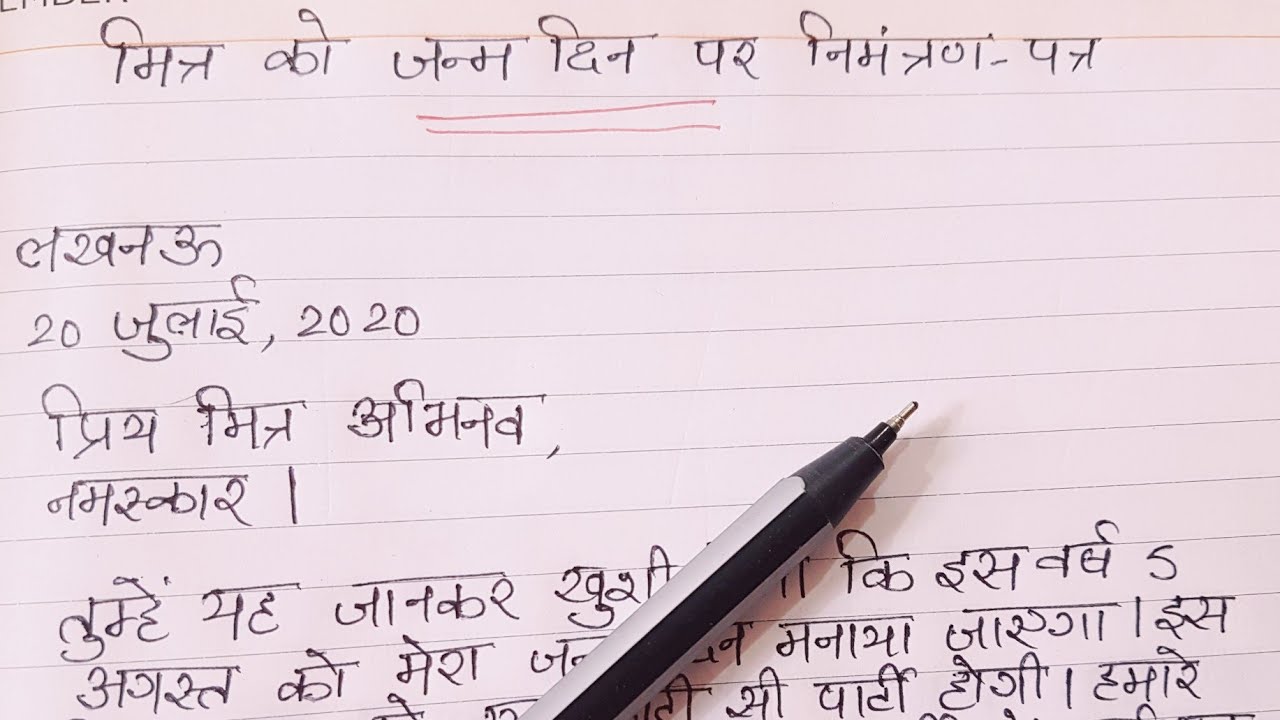 मित्र को जन्म दिन पर निमंत्रण-पत्र
लखनऊ
20 जुलाई, 2020
प्रिय मित्र अभिनव,
नमस्कार।
तुम्हें यह जानकर खुशी कि इस वर्ष 5
अगस्त को मेरा मनाया जाएगा। इस
सी पार्टी होगी। हमारे